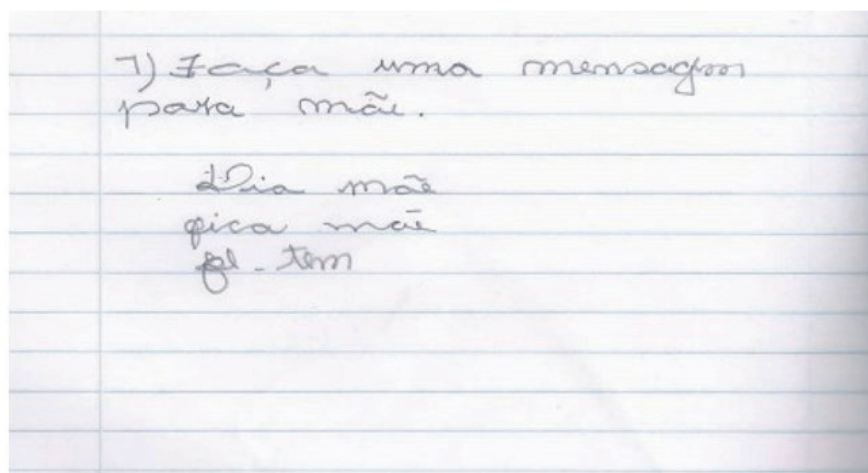 7) Faça uma mensagm
para mãe.
Dia mãe
fica mãe
fel - tem